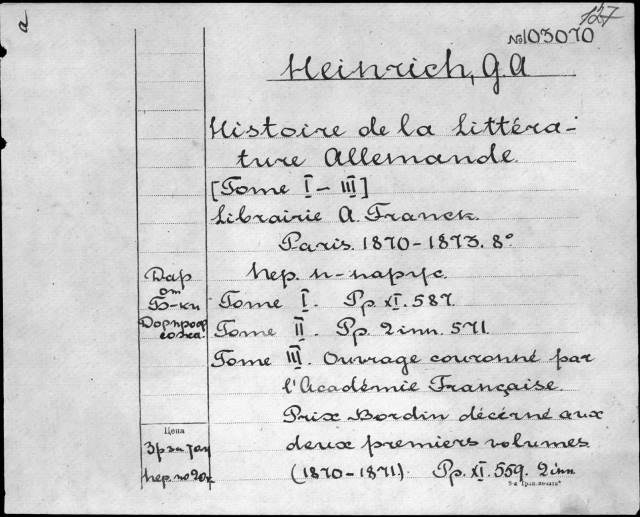 a
127
№103070
Heinrich, G.A
Histoire de la Littéra-
ture Allemande.
[Tome I–III]
Librairie A. Franck.
Paris. 1870-1873. 8°
Дар
от
Б-ки
пер. п-парус.
Tome I. Pp. XI. 587.
Tome II. Pp. 2 inn. 571.
Tome III. Ouvrage couronné par
l'Académie Française.
Prix Bordin décérné aux
deux premiers volumes
(1870-1871). Pp. XI. 559. 2 inn
Цена
3р за том
пер. по 20к